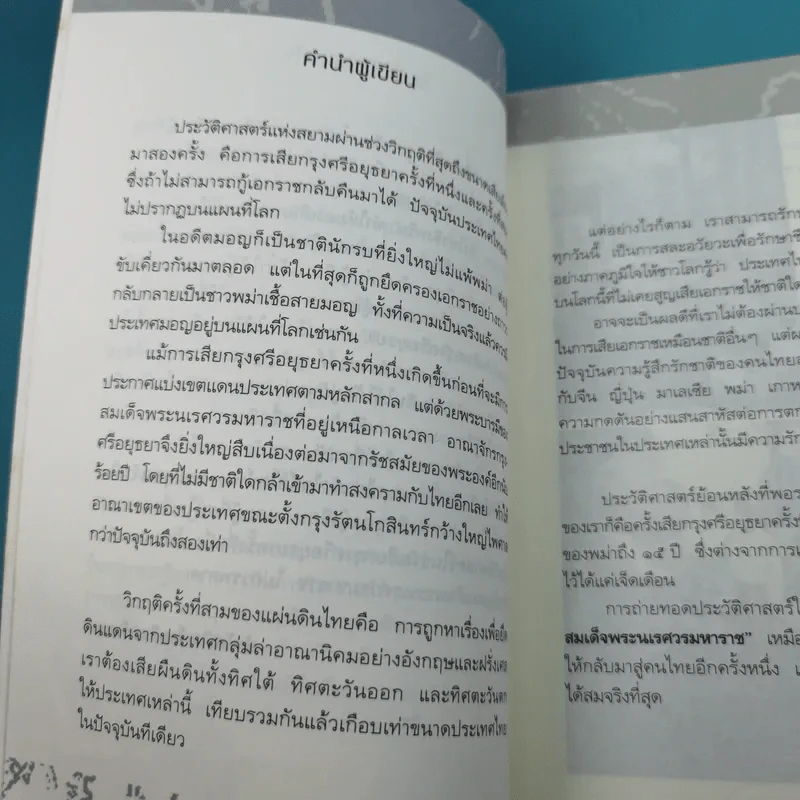 คำนำผู้เขียน
ประวัติศาสตร์แห่งสยามผ่านช่วงวิกฤติที่สุดถึงขนาดเสีย
มาสองครั้ง คือการเสียกรุงศรีอยุธยาครั้งที่หนึ่งและครั้งที่
ซึ่งถ้าไม่สามารถกู้เอกราชกลับคืนมาได้ ปัจจุบันประเทศไทย
ไม่ปรากฏบนแผนที่โลก
ในอดีตมอญก็เป็นชาตินักรบที่ยิ่งใหญ่ไม่แพ้พม่า
ขับเคี่ยวกันมาตลอด แต่ในที่สุดก็ถูกยึดครองเอกราชอย่าง
กลับกลายเป็นชาวพม่าเชื้อสายมอญ ทั้งที่ความเป็นจริงแล้ว
ประเทศมอญอยู่บนแผนที่โลกเช่นกัน
แม้การเสียกรุงศรีอยุธยาครั้งที่หนึ่งเกิดขึ้นก่อนที่จะมีการ
ประกาศแบ่งเขตแดนประเทศตามหลักสากล แต่ด้วยพระบารมี
สมเด็จพระนเรศวรมหาราชที่อยู่เหนือกาลเวลา อาณาจักรกรุง
ศรีอยุธยาจึงยิ่งใหญ่สืบเนื่องต่อมาจากรัชสมัยของพระองค์อีก
ร้อยปี โดยที่ไม่มีชาติใดกล้าเข้ามาทำสงครามกับไทยอีกเลย
อาณาเขตของประเทศขณะตั้งกรุงรัตนโกสินทร์กว้างใหญ่ไพศาล
กว่าปัจจุบันถึงสองเท่า
วิกฤติครั้งที่สามของแผ่นดินไทยคือ การถูกหาเรื่องเพื่อยึด
ดินแดนจากประเทศกลุ่มล่าอาณานิคมอย่างอังกฤษและฝรั่งเศส
เราต้องเสียผืนดินทั้งทิศใต้ ทิศตะวันออก และทิศตะวันตก
ให้ประเทศเหล่านี้ เทียบรวมกันแล้วเกือบเท่าขนาดประเทศไทย
ในปัจจุบันทีเดียว
แต่อย่างไรก็ตาม เราสามารถรักษ
ทุกวันนี้ เป็นการสละอวัยวะเพื่อรักษาชี
อย่างภาคภูมิใจให้ชาวโลกรู้ว่า ประเทศไท
บนโลกนี้ที่ไม่เคยสูญเสียเอกราชให้ชาติใด
อาจจะเป็นผลดีที่เราไม่ต้องผ่านบ
ในการเสียเอกราชเหมือนชาติอื่นๆ แต่ผ
ปัจจุบันความรู้สึกรักชาติของคนไทย
กับจีน ญี่ปุ่น มาเลเซีย พม่า เกาห
ความกดดันอย่างแสนสาหัสต่อการตก
ประชาชนในประเทศเหล่านั้นมีความรัก
ประวัติศาสตร์ย้อนหลังที่พอร
ของเราก็คือครั้งเสียกรุงศรีอยุธยาครั้ง
ของพม่าถึง ๑๕ ปี ซึ่งต่างจากการเ
ไว้ได้แค่เจ็ดเดือน
การถ่ายทอดประวัติศาสตร์ใ
สมเด็จพระนเรศวรมหาราช" เหมือ
ให้กลับมาสู่คนไทยอีกครั้งหนึ่ง
ได้สมจริงที่สุด